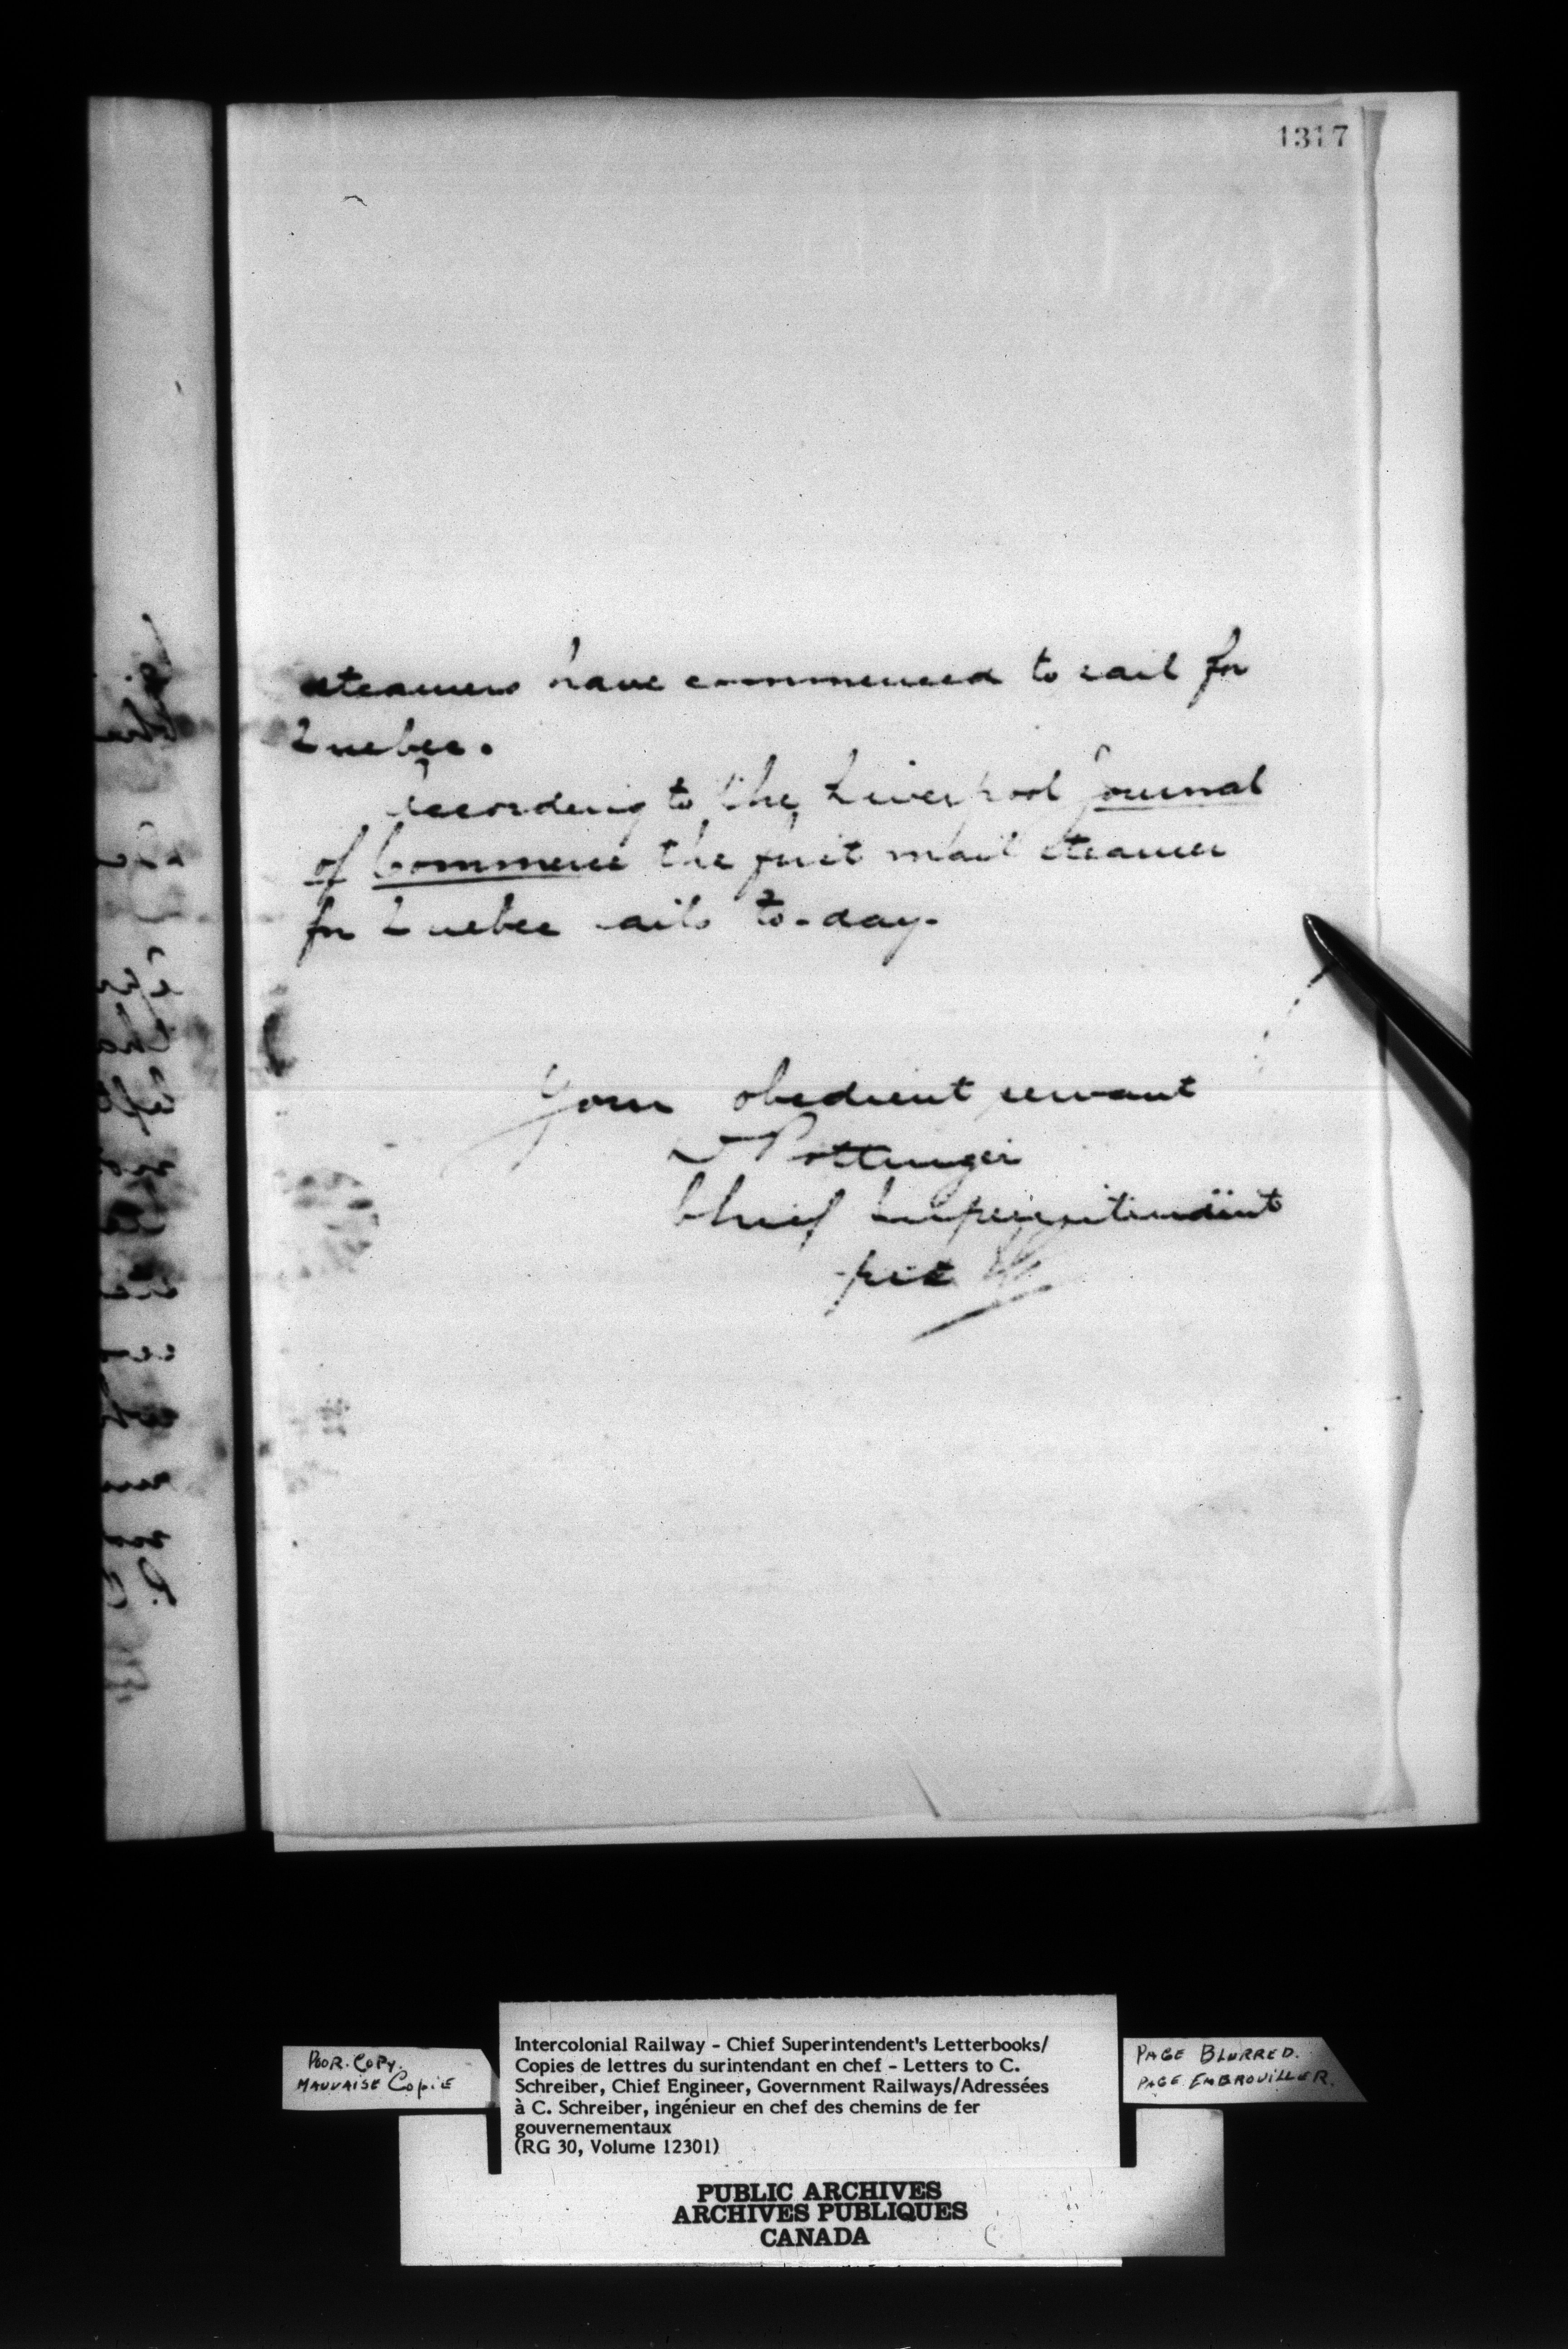 1317
steamers have commenced to sail for
Quebec.
According to the Liverpool Journal
of Commerce the first mail steamer
for Quebec sails to-day.
Your obedient servant
D Pottinger
Chief Superintendent
per
POOR COPY.
MAUVAISE COPIE
Intercolonial Railway - Chief Superintendent's Letterbooks/
Copies de lettres du surintendant en chef - Letters to C.
Schreiber, Chief Engineer, Government Railways/Adressées
à C. Schreiber, ingénieur en chef des chemins de fer
gouvernementaux
(RG 30, Volume 12301)
PAGE BLURRED.
PAGE EMBROUILLER.
PUBLIC ARCHIVES
ARCHIVES PUBLIQUES
CANADA